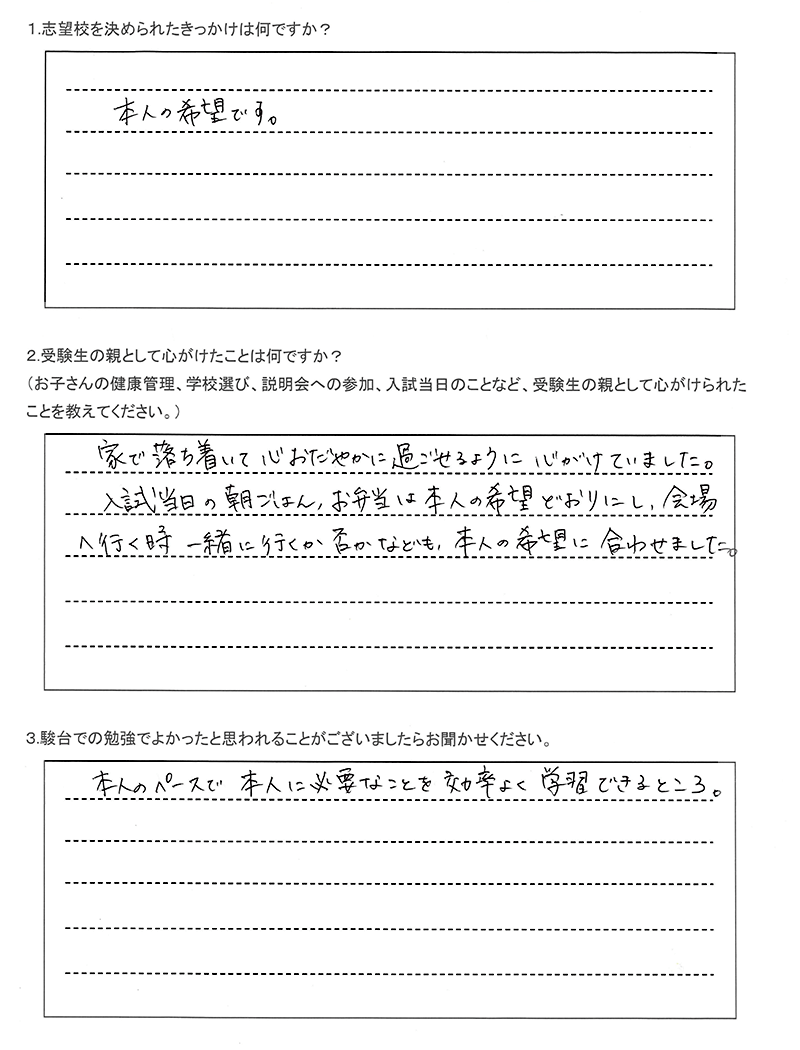 1.志望校を決められたきっかけは何ですか？
本人の希望です。
2.受験生の親として心がけたことは何ですか？
（お子さんの健康管理、学校選び、説明会への参加、入試当日のことなど、受験生の親として心がけられた
ことを教えてください。）
家で落ち着いて心おだやかに過ごせるように心がけていました。
入試当日の朝ごはん,お弁当は本人の希望どおりにし,会場
へ行く時一緒に行くか否かなども,本人の希望に合わせました。
3.駿台での勉強でよかったと思われることがございましたらお聞かせください。
本人のペースで本人に必要なことを効率よく学習できるところ。